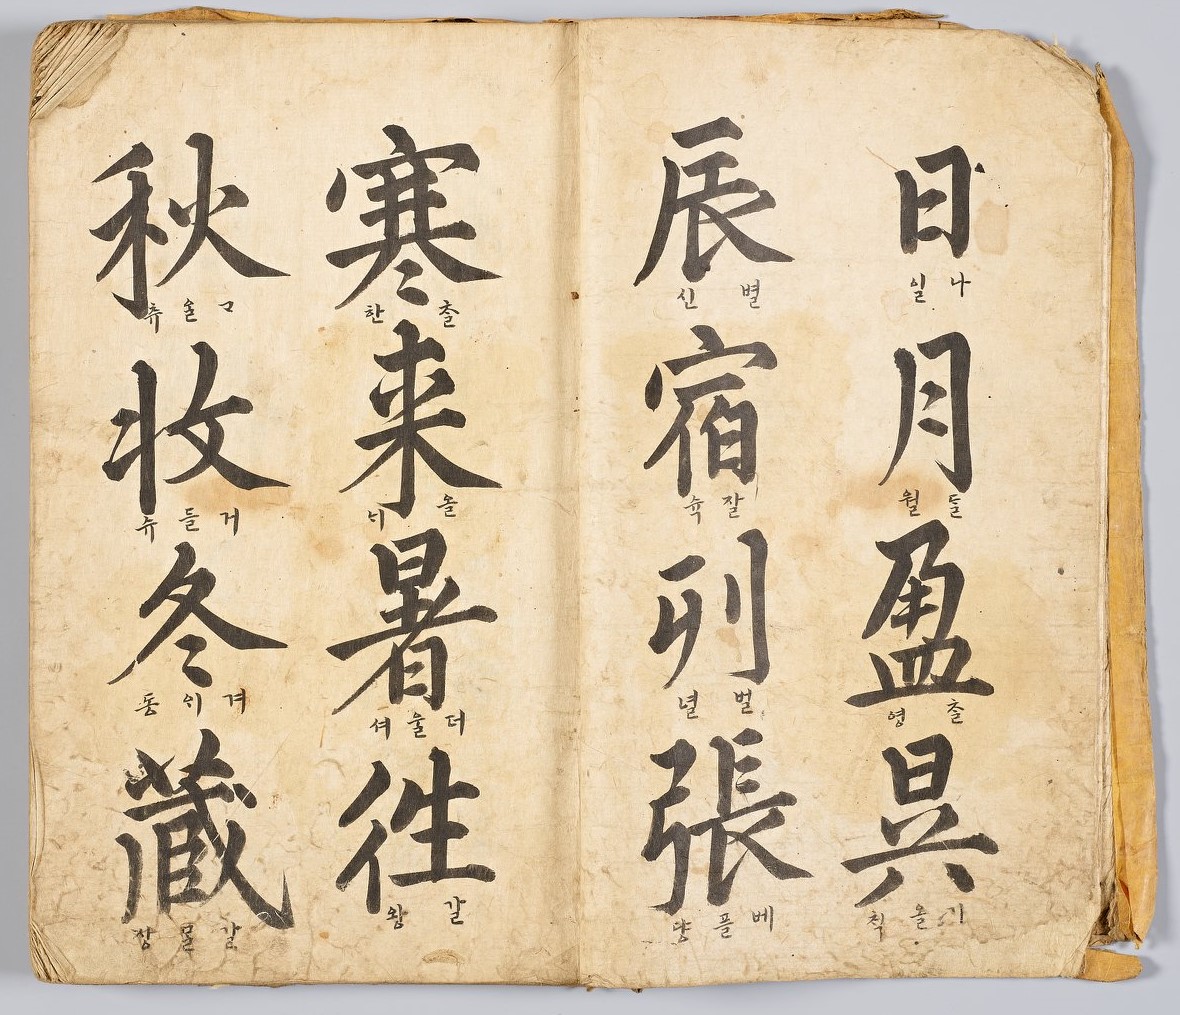 日 나 일 月 ᄃᆞᆯ 월 盈 ᄎᆞᆯ 영 昃 기올 칙
辰 별 신 宿 잘 슉 列 벌 녈 張 베플 댱
寒 ᄎᆞᆯ 한 来 올 ᄂᆡ 暑 더울 셔 往 갈 왕
秋 ᄀᆞ올 츄 收 거들 슈 冬 겨ᄋᆡ 동 藏 갈믈 장